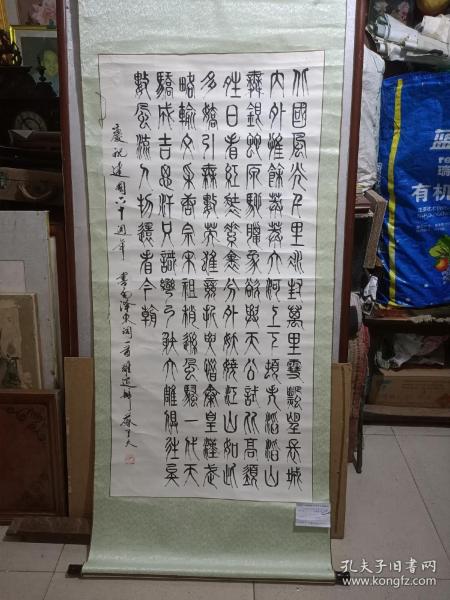 北國風光千里冰封萬里雪飄望長城
内外惟餘莽莽大河上下頓失滔滔山
舞銀蛇原馳臘象欲與天公試比高須
晴日看紅裝素裹分外妖嬈江山如此
多嬌引無數英雄競折腰惜秦皇漢武
略輸文采唐宗宋祖稍遜風騷一代天
驕成吉思汗只識彎弓射大雕俱往矣
數風流人物還看今朝
慶祝建國六十週年 書毛澤東词一首
蓝
re
瑞
有机
孔夫子旧书网
www.kongfz.com